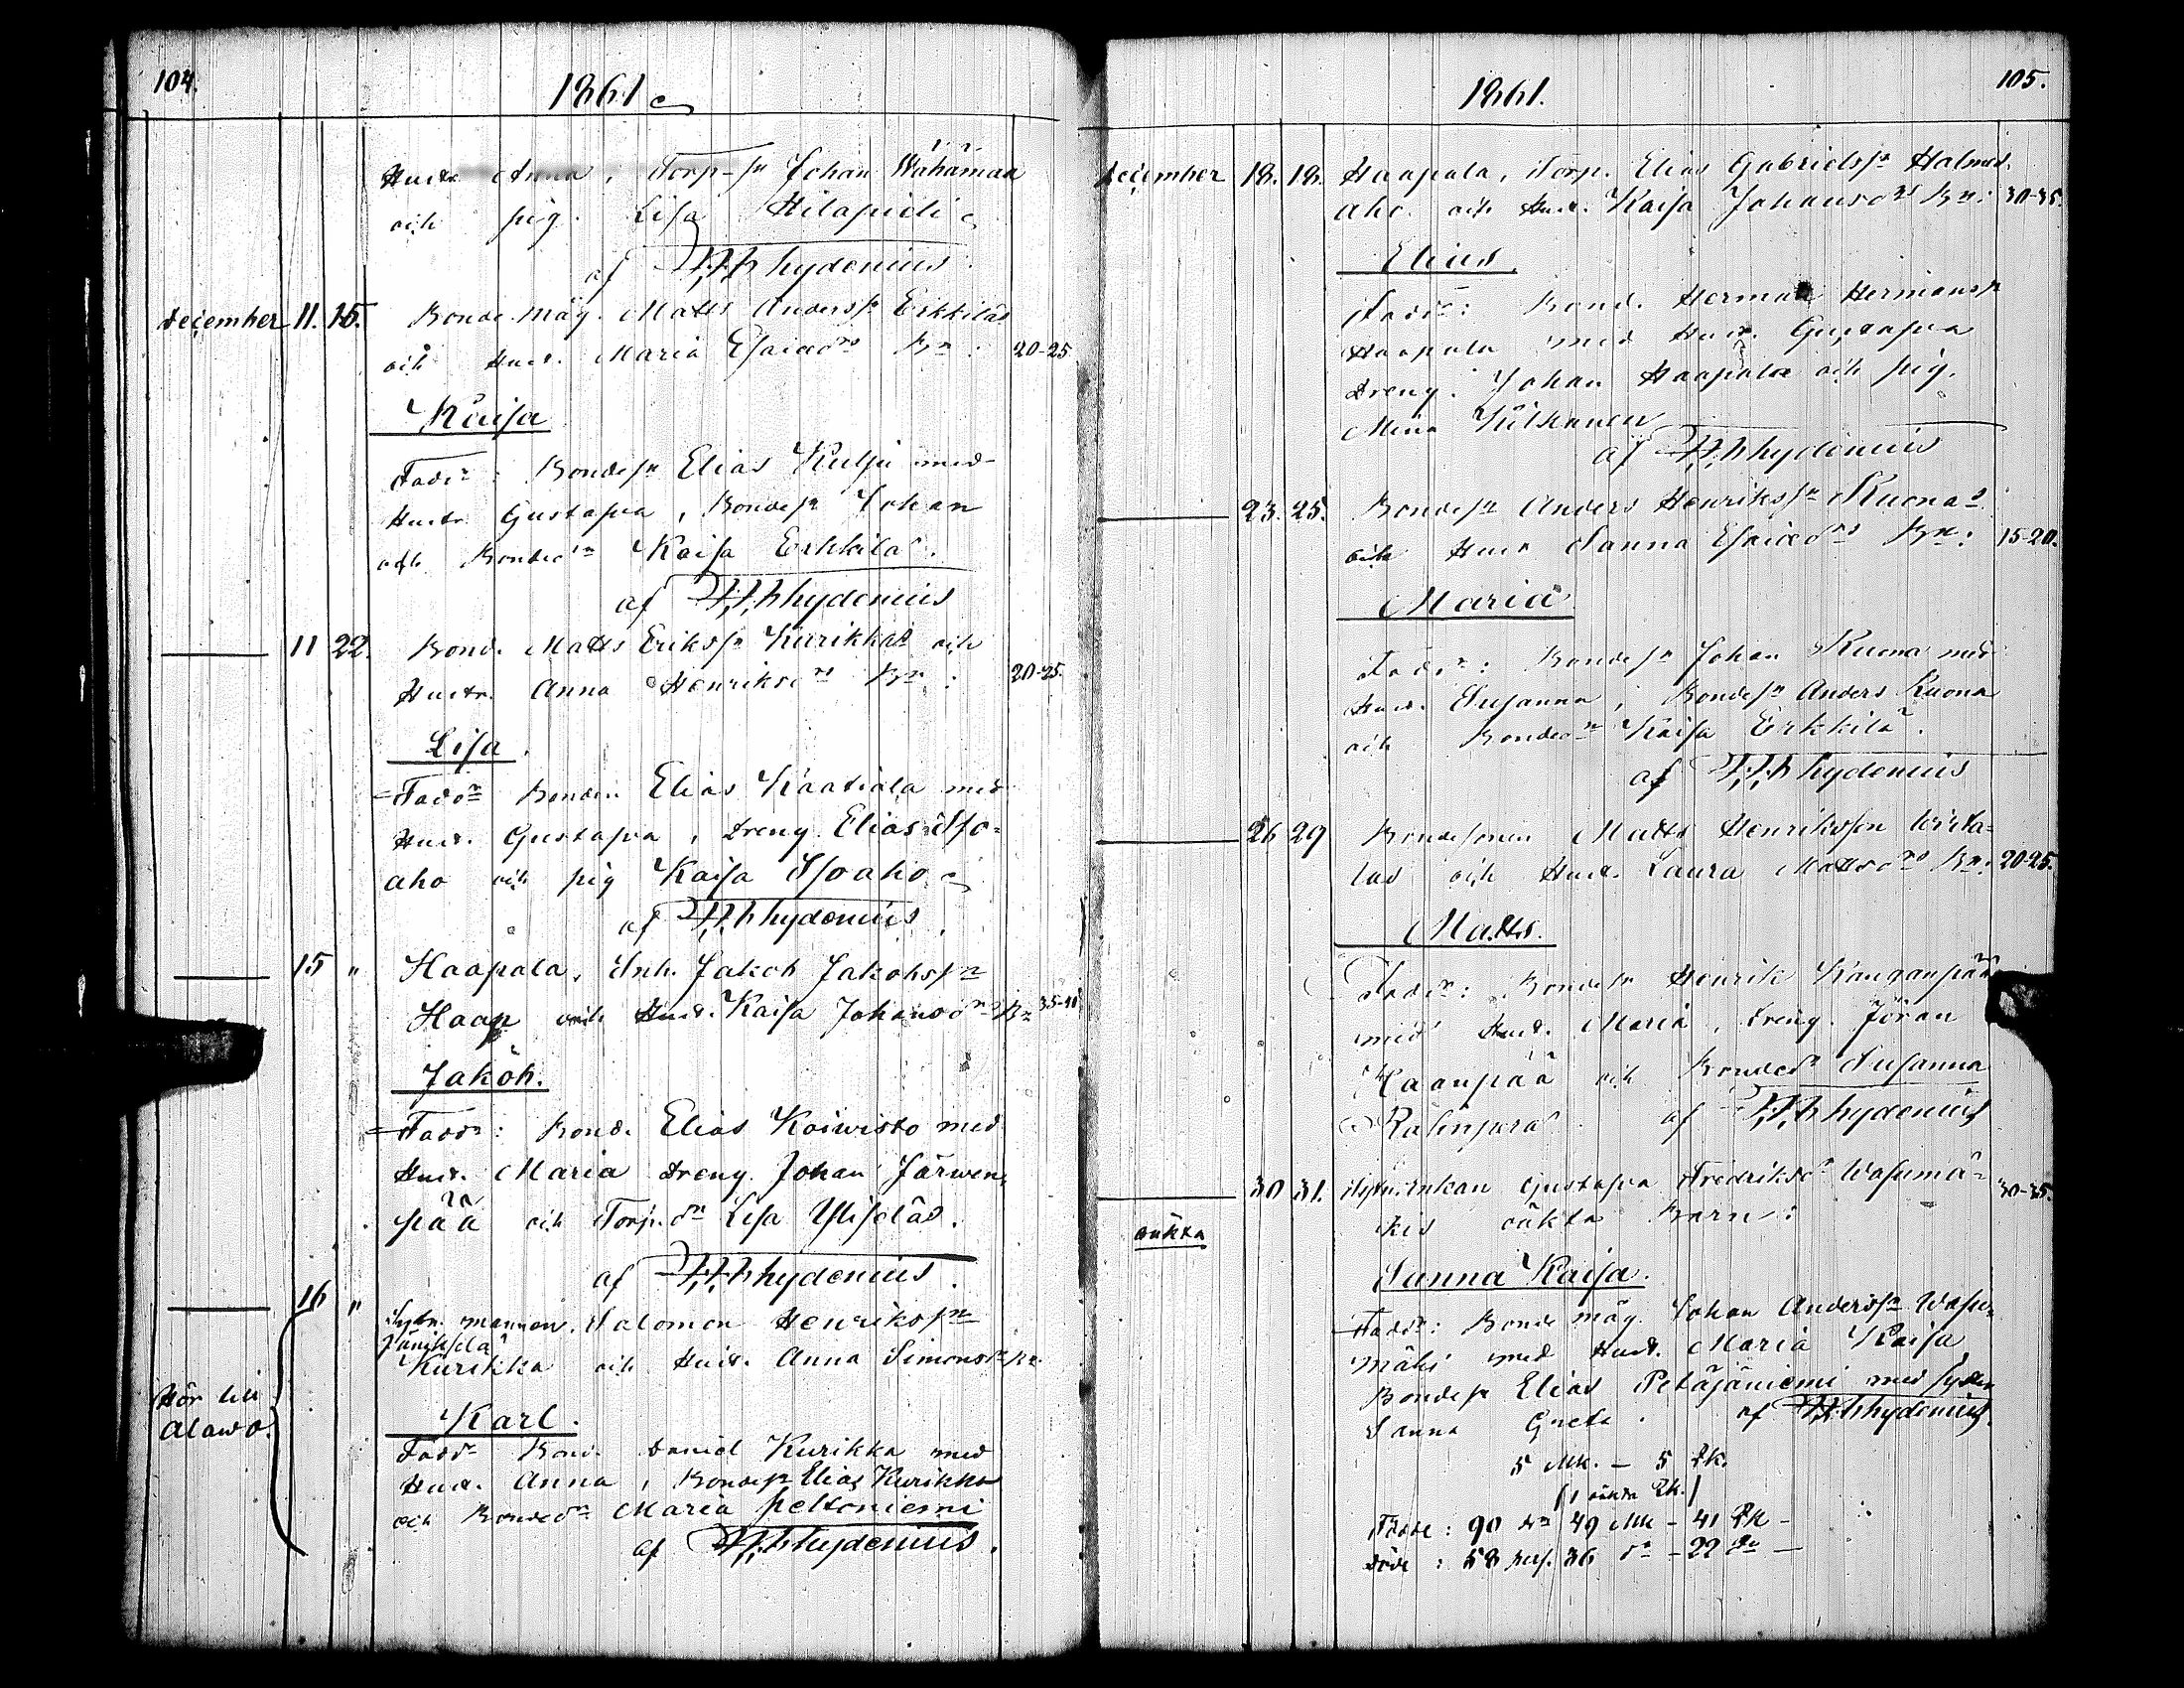 104.
1861
Hustr Anna, Torp-sn Johan Wähämaa
och pig. Lisa Hilapieli
af Hydenius
December 11. 15. Bonde Måg. Matts Anderssn Erkkiläs
och Hust. Maria Esaiedrs Bn: 20-25
Kaisa
Faddr: Bondesn Elias Kulju med
Hustr Gustafva, Bondesn Johan
och Bondedrn Kaisa Erkkilä.
af Hydenius
11 22. Bond. Matts Erikssn Kurikkas och
Hustr. Anna Henriksdrs Bn: 20-25.
Lisa.
Faddr Bonden Elias Kaatiala med
Hust. Gustafva, Dreng. Elias Iso-
aho och pig Kaisa Isoaho
af Hydenius
15 " Haapala, Inh. Jakob Jakobssn
Haap och Hust. Kaisa Johansdrs Bn 35-40
Jakob.
Faddr: Bond. Elias Koiwisto med
Hust. Maria Dreng. Johan Järwen-
pää och Torp.dr Lisa Ylisdäs.
af Hydenius.
16 " Sytn. mannen. Salomon Henrikssn
Kurikka och Hust. Anna Simonsdr Bn.
Hör till
Alawo.
Karl.
Faddr Bond. Daniel Kurikka med
Hust. Anna, Bondesn Elias Kurikka
och Bondedr Maria Peltoniemi
af Hydenius.
105.
1861.
December 18. 18. Haapala, Torp. Elias Gabrielssn Halmes-
aho och Hust. Kaisa Johansdrs Bn: 30-35.
Elias.
Faddr: Bond. Herman Hermanssn
Haapala med Hust. Gustafva
Dreng. Johan Haapala och pig.
Mina Ylkkanen
af Hydenius
23. 25. Bondesn Anders Henrikssn Kuonas
och Hust Sanna Esaiedrs Bn: 15-20.
Maria
Faddr: Bondesn Johan Kuona med
Hust. Susanna, Bondesn Anders Kuona
och Bondedr Kaisa Erkkilä.
af Hydenius
26 29 Bondesonen Matts Henriksson Wirta-
las och Hust. Laura Mattsdrs Bn: 20-25.
Matts.
Faddr: Bondesn Henrik Kanganpää
med Hust. Maria, Dreng. Jöran
Kaanpää och Bondedr Susanna
Ralinperä af Hydenius
30 31. Sytn. enkan Gustafva Fredriksdr Wasumä- 30-35.
kis oäkta Barn:
oäkta
Sanna Kaisa.
Faddr: Bonde måg Johan Anderssn Wasu-
mäki med Hust. Maria Kaisa
Bondesn Elias Petäjäniemi med syster
Sanna Greta. af Hydenius.
5 Mk. - 5 Qk.
(1 oäkta Qk.)
Födde: 90 dn 49 Mk - 41 Qk -
Döde: 58 pers. 36 do - 22 do -